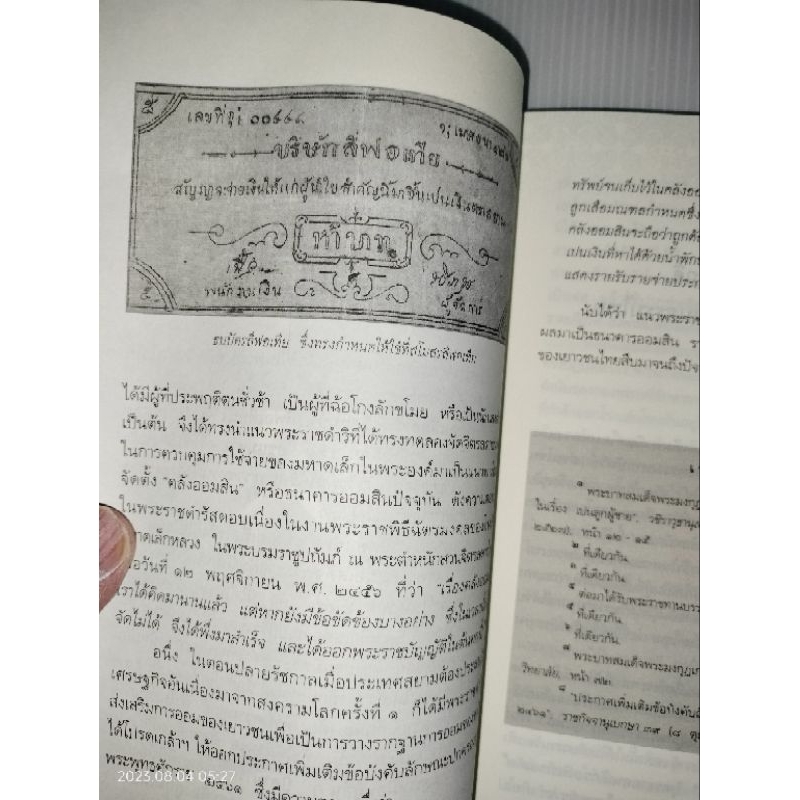 เลขที่
บริษัทลีฟอเทีย
สัญญาจะจ่ายเงินให้แก่ผู้นำใบสำคัญนี้มาขึ้นเปนเงินตราสยาม
ห้าบาท
พนักงานเงิน
ผู้จัดการ
ธนบัตรลีฟอเทีย ซึ่งทรงกำหนดให้ใช้ที่สโมสรลีฟอเทีย
ได้มีผู้ที่ประพฤติตนชั่วช้า เป็นผู้ที่ฉ้อโกงลักขโมย หรือเป็นหนี้
เป็นต้น จึงได้ทรงนำแนวพระราชดำริที่ได้ทรงทดลองจัด
ในการควบคุมการใช้จ่ายของมหาดเล็กในพระองค์มาเป็นแนว
จัดตั้ง "คลังออมสิน" หรือธนาคารออมสินปัจจุบัน ดังความ
ในพระราชดำรัสตอบเนื่องในงานพระราชพิธีฉัตรมงคลของ
าดเล็กหลวง ในพระบรมราชูปถัมภ์ ณ พระตำหนักสวนจิตรลดา
่อวันที่ ๑๒ พฤศจิกายน พ.ศ. ๒๔๕๖ ที่ว่า "เรื่องคลังออม
เราได้คิดมานานแล้ว แต่หากยังมีข้อขัดข้องบางอย่าง ซึ่งใน
จัดไม่ได้ จึงได้พึ่งมาสำเร็จ และได้ออกพระราชบัญญัติ
อนึ่ง ในตอนปลายรัชกาลเมื่อประเทศสยามต้องประสบ
เศรษฐกิจอันเนื่องมาจากสงครามโลกครั้งที่ ๑ ก็ได้มีพระราช
ส่งเสริมการออมของเยาวชนเพื่อเป็นการวางรากฐานการออม
ได้โปรดเกล้าฯ ให้ออกประกาศเพิ่มเติมข้อบังคับลักษณะปกครอง
พระพุทธศักราช ๒๔๖๑ ซึ่งมีความ
2023.08.04 05:27
ทรัพย์ซนเก็บไว้ในคลังออ
ลูกเสือมณฑลกำหนดซึ่ง
คลังออมสินจะถือว่าถูกต้อ
เปนเงินที่หาได้ด้วยน้ำพัก
แสดงรายรับรายจ่ายประก
นับได้ว่า แนวพระรา
ผลมาเป็นธนาคารออมสิน รา
ของเยาวชนไทยสืบมาจนถึงปัจ
๑ พระบาทสมเด็จพระมงกุฎ
ในเรื่อง เปนลูกผู้ชาย", วชิราวุธานุ
หน้า ๑๒ - ๑๕
๒ ที่เดียวกัน
๓ ที่เดียวกัน
๔ ต่อมาได้รับพระราชทานบรร
๕ ที่เดียวกัน
๖ ที่เดียวกัน
๗ พระบาทสมเด็จพระมงกุฎเก
วิทยาลัย, หน้า ๗๒
๘ "ประกาศเพิ่มเติมข้อบังคับลั
๒๔๖๑", ราชกิจจานุเบกษา ๓๙ (๘ ตุ